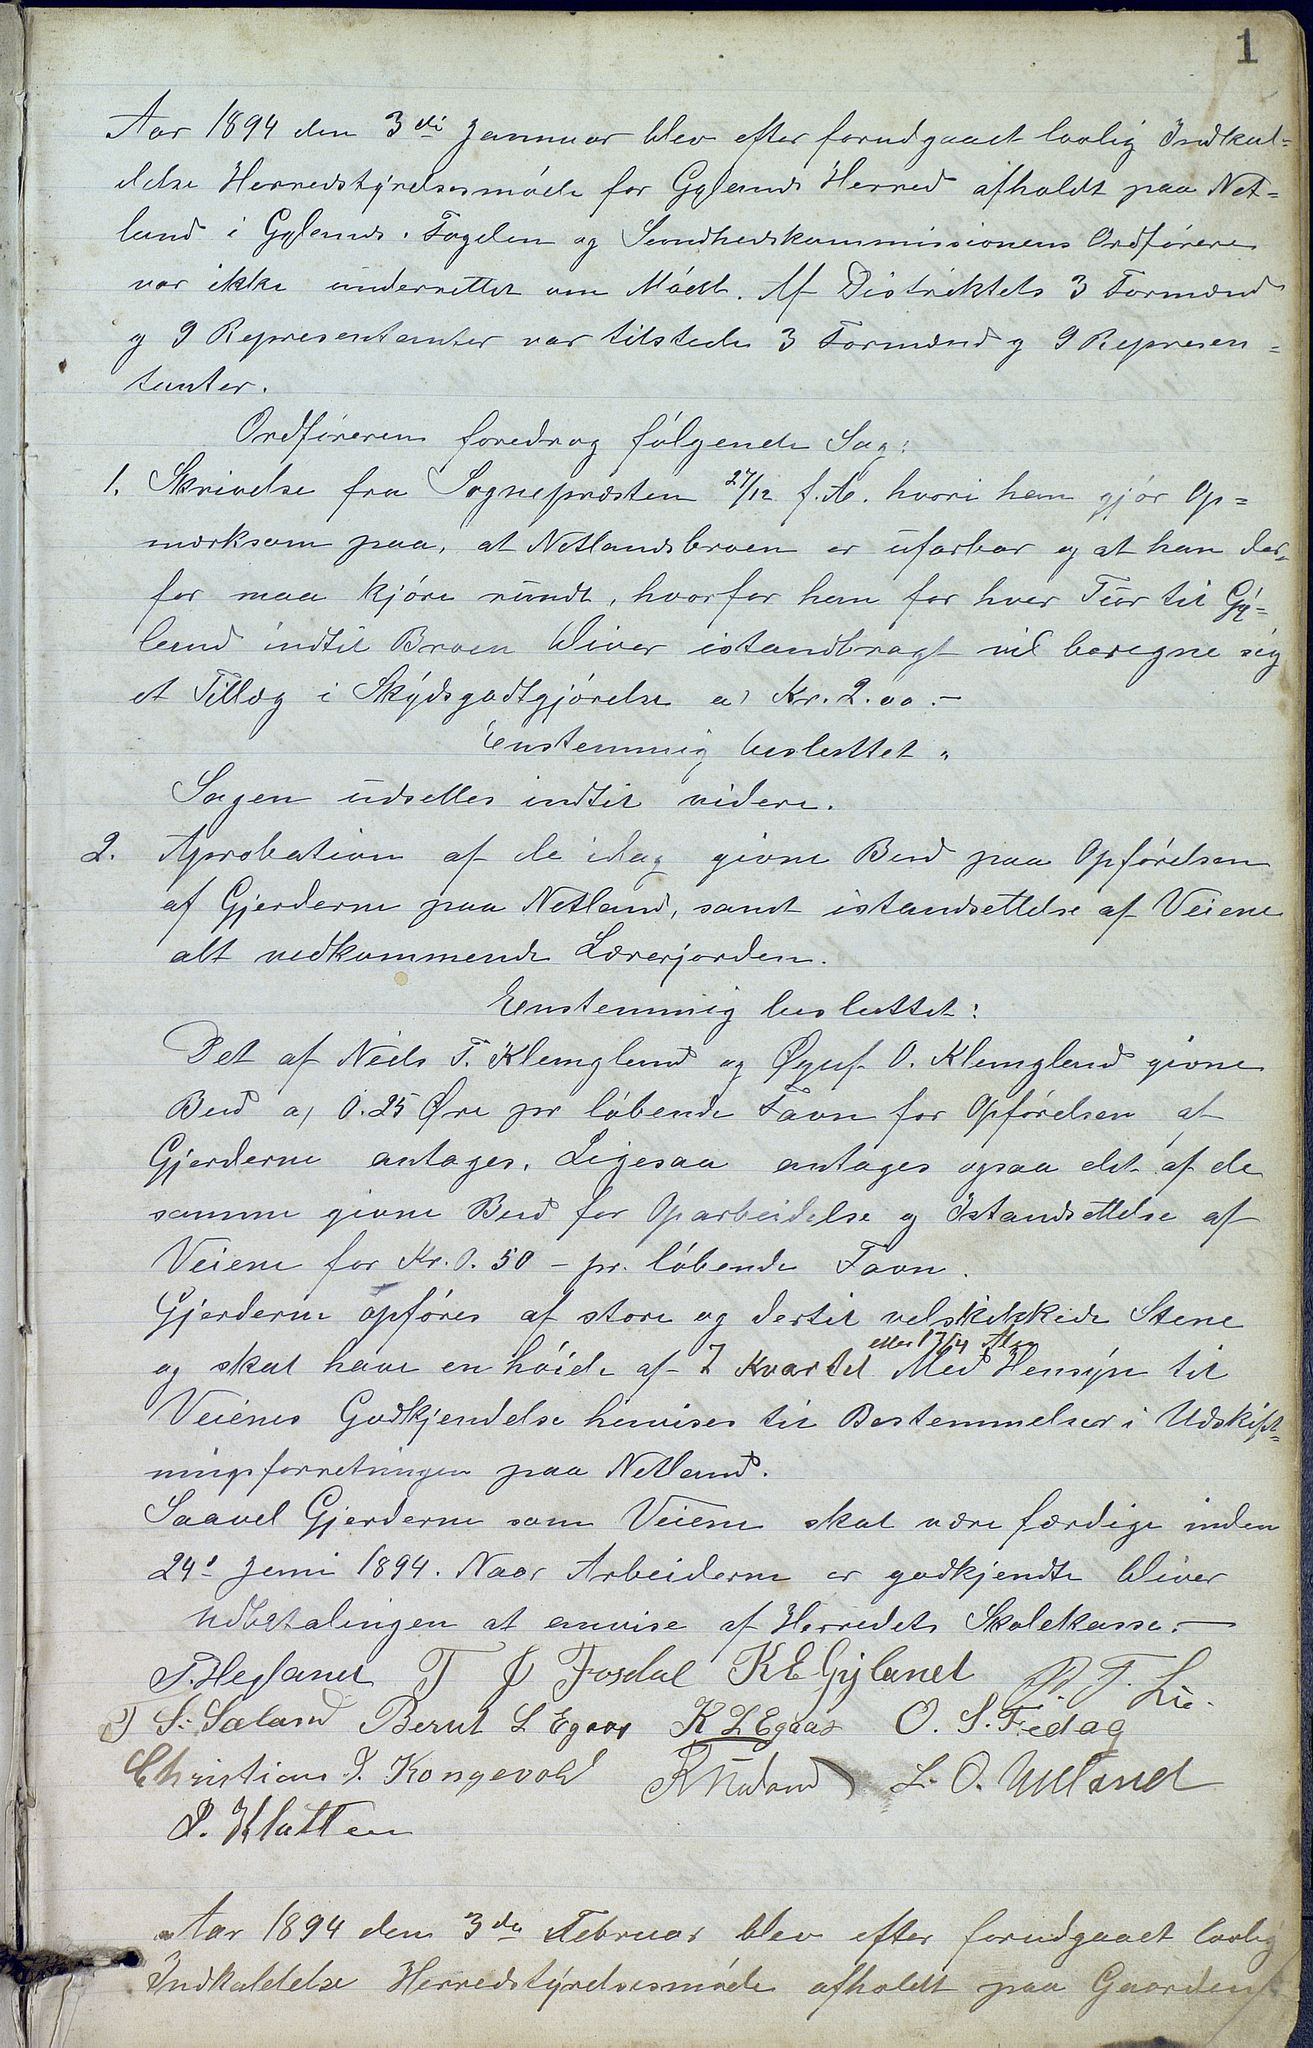 1
Aar 1894 den 3die Januar blev efter forudgaaet lovlig Indkal-
delse Herredstyrelsesmøde for Gylands Herred afholdt paa Net-
land i Gyland. Fogden og Sundhedskommissionens Ordfører
var ikke underrettet om Mødet. Af Distriktets 3 Formænd
og 9 Representanter var tilstede 3 Formænd og 9 Represen-
tanter.
Ordføreren foredrog følgende Sag:
1. Skrivelse fra Sognepræsten 27/12 f.A. hvori han gjør Op-
mærksom paa, at Netlandsbroen er ufarbar og at han der-
for maa kjøre rundt, hvorfor han for hver Tur til Gy-
land indtil Broen bliver istandbragt vil beregne sig
et Tillæg i Skydsgodtgjørelse a, Kr. 2.00.-
Enstemmig besluttet.
Sagen udsettes indtil videre.
2. Aprobation af de idag givne Bud paa Opførelsen
af Gjerderne paa Netland, samt istandsettelse af Veiene
alt vedkommende Lærerjorden.
Enstemmig besluttet:
Det af Niels T. Klungland og O. Klungland givne
Bud a, 0.25 Øre pr løbende Favn for Opførelsen af
Gjerderne antages. Ligesaa antages ogsaa det af de
samme givne Bud for Oparbeidelse og Istandsettelse af
Veiene for Kr. 0.50 - pr. løbende Favn.
Gjerderne opføres af store og dertil velskikkede Stene
eller 1 3/4 Alen
og skal have en høide af 7 Kvartel Med Hensyn til
Veienes Godkjendelse henvises til Bestemmelser i Udskift-
ningsforretningen paa Netland.
Saavel Gjerderne som Veiene skal være færdige inden
24de Juni 1894. Naar Arbeiderne er godkjendte bliver
Udbetalingen at anvise af Herredets Skolekasse.-
T. Hegland T J Josdal K E Gyland T. Lie.
S. Sæland Bernt L Egaas K L Egaas O. S. Fidag
Christian J. Kongevold L. O. Urland
P. Klatten
Aar 1894 den 3de Februar blev efter forudgaaet lovlig
Indkaldelse Herredstyrelsesmøde afholdt paa Gaarden